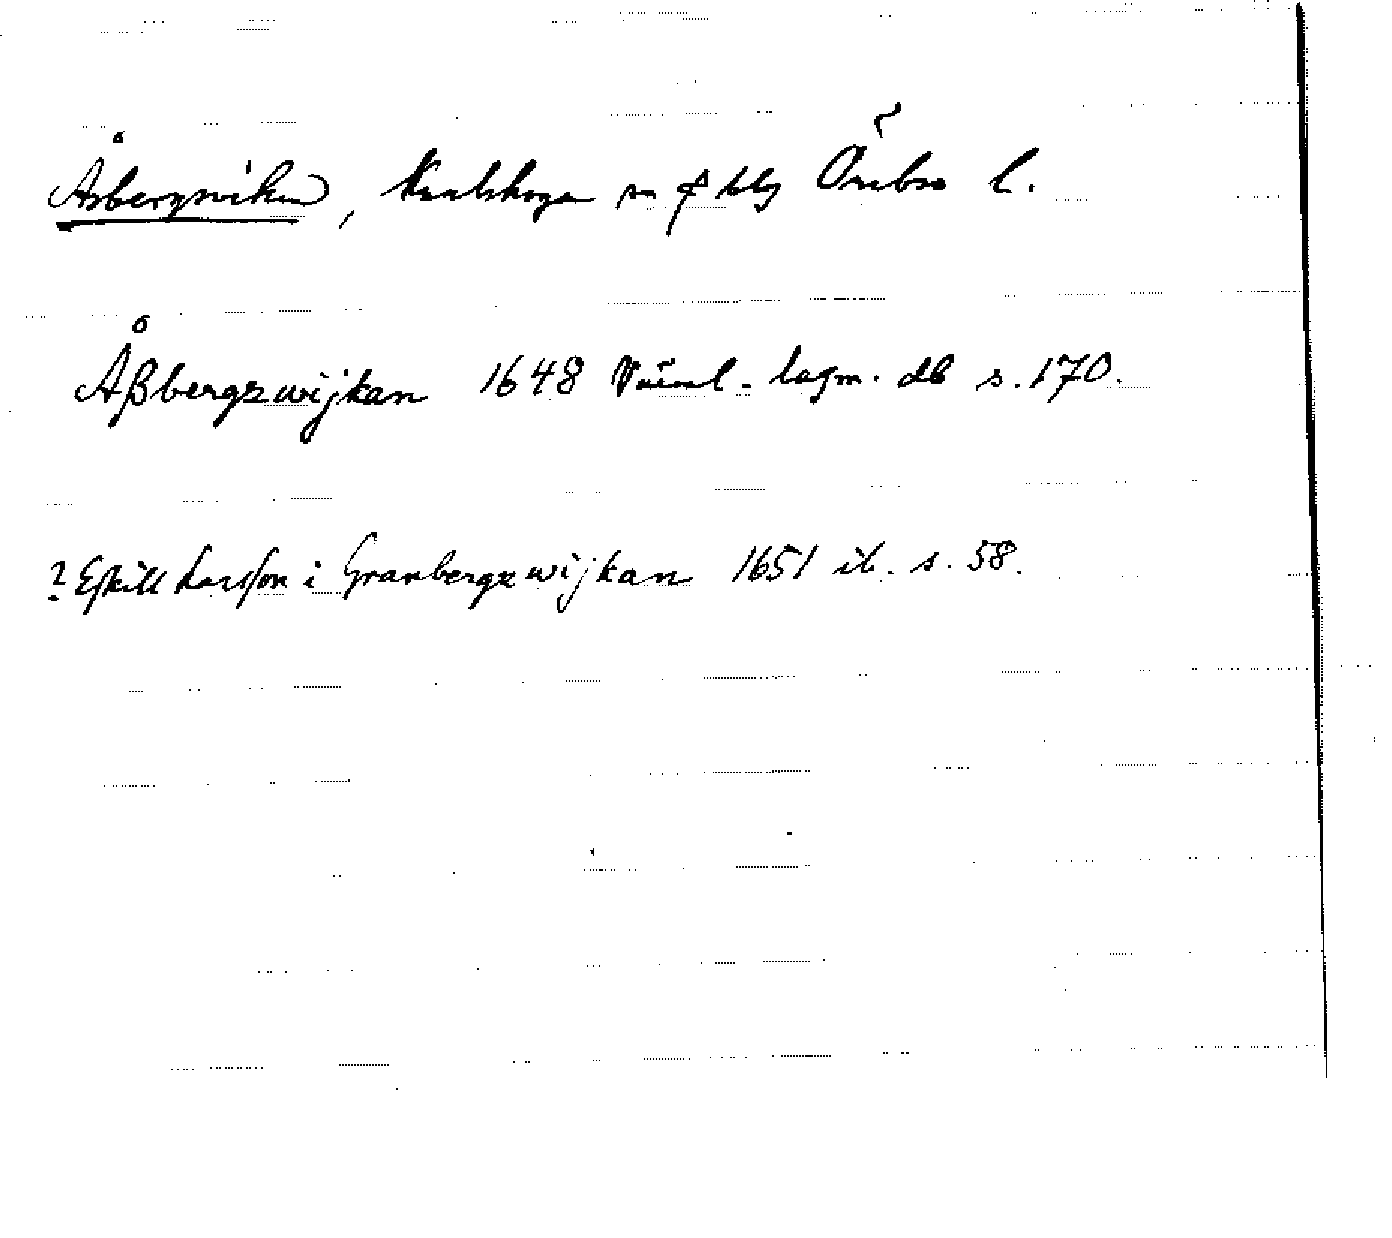 Åsbergsviken, Karlskoga sn o blg Örebro l.
Åßbergzwijkan 1648 Värml. lagm. db s. 170.
? Eskill Larsson i Granbergzwijkan 1651 ib. s. 58.